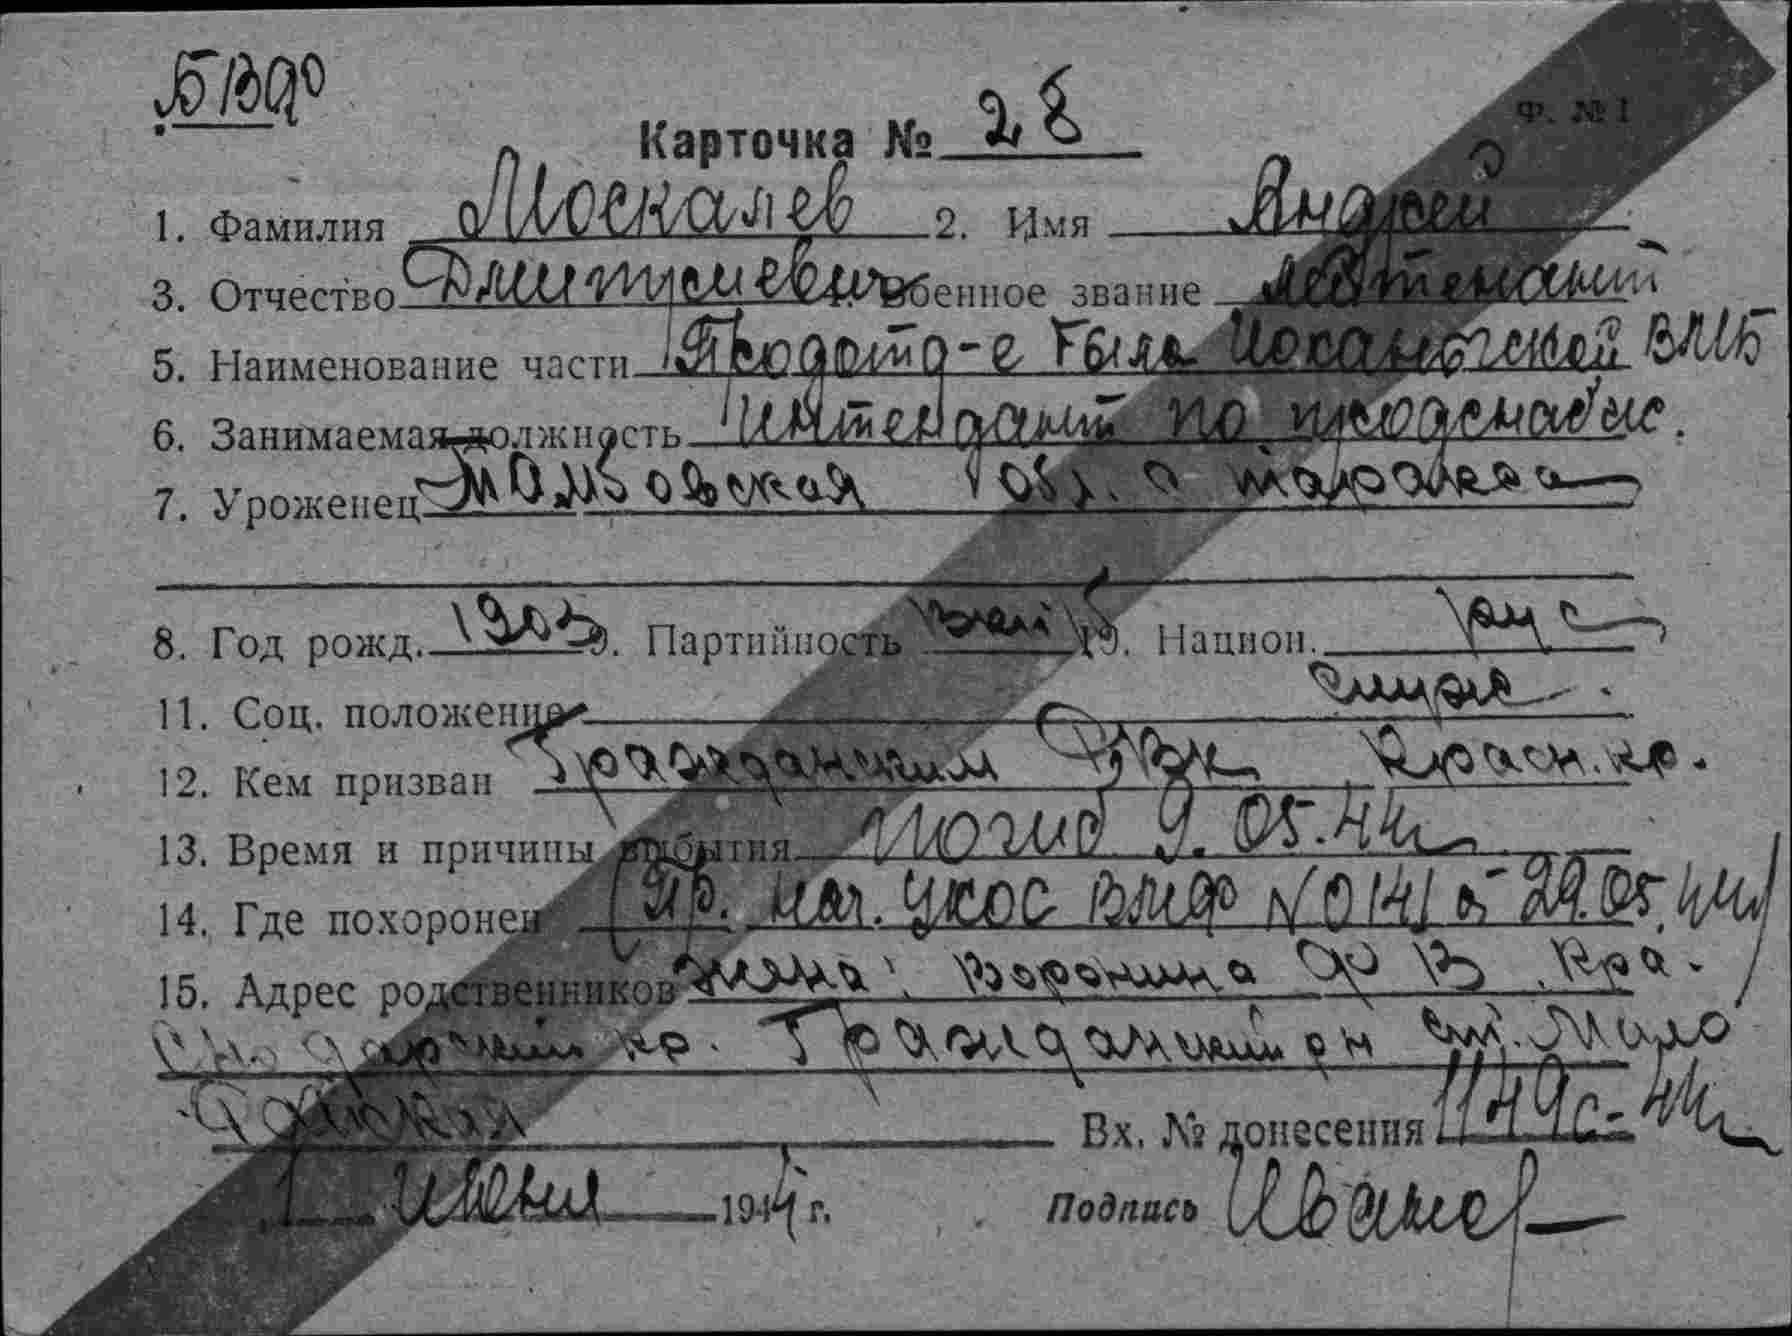 Ф. № 1
Карточка № 28
1. Фамилия Москалев 2. Имя Андрей
3. Отчество Дмитриевич военное звание лейтенант
5. Наименование части Продотд-е Тыла Иоканьгской ВМБ
6. Занимаемая должность интендант по продснабж.
7. Уроженец Тамбовская обл. с
8. Год рожд. 1903 9. Партийность 10. Национ. рус
11. Соц. положение служ.
12. Кем призван Гражданским РВК Красн. кр.
13. Время и причины выбытия Погиб 9.05.44г
14. Где похоронен (Пр. нач. УКОС ВМФ № 0141 от 29.05.44г)
15. Адрес родственников жена: Воронина Ф В Кра-
снодарский кр. Гражданский рн ст. Мило
Вх. № донесения 1149с-44г
1 июня 1944 г. Подпись Иванов